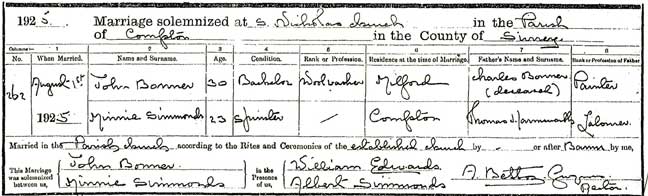 1925. Marriage solemnized at S. Nicholas Church in the Parish
of Compton in the County of Surrey
Columns:— 1 2 3 4 5 6 7 8
No. When Married. Name and Surname. Age. Condition. Rank or Profession. Residence at the time of Marriage. Father's Name and Surname. Rank or Profession of Father
262 August 1st 1925 John Bonner 30 Bachelor Milford Charles Bonner (deceased) Painter
Minnie Simmonds 23 Spinster / Compton Thomas Simmonds Labourer
Married in the Parish Church according to the Rites and Ceremonies of the established Church by - or after Banns by me,
This Marriage was solemnized between us, John Bonner Minnie Simmonds in the Presence of us, William Edwards Albert Simmonds A. Rector